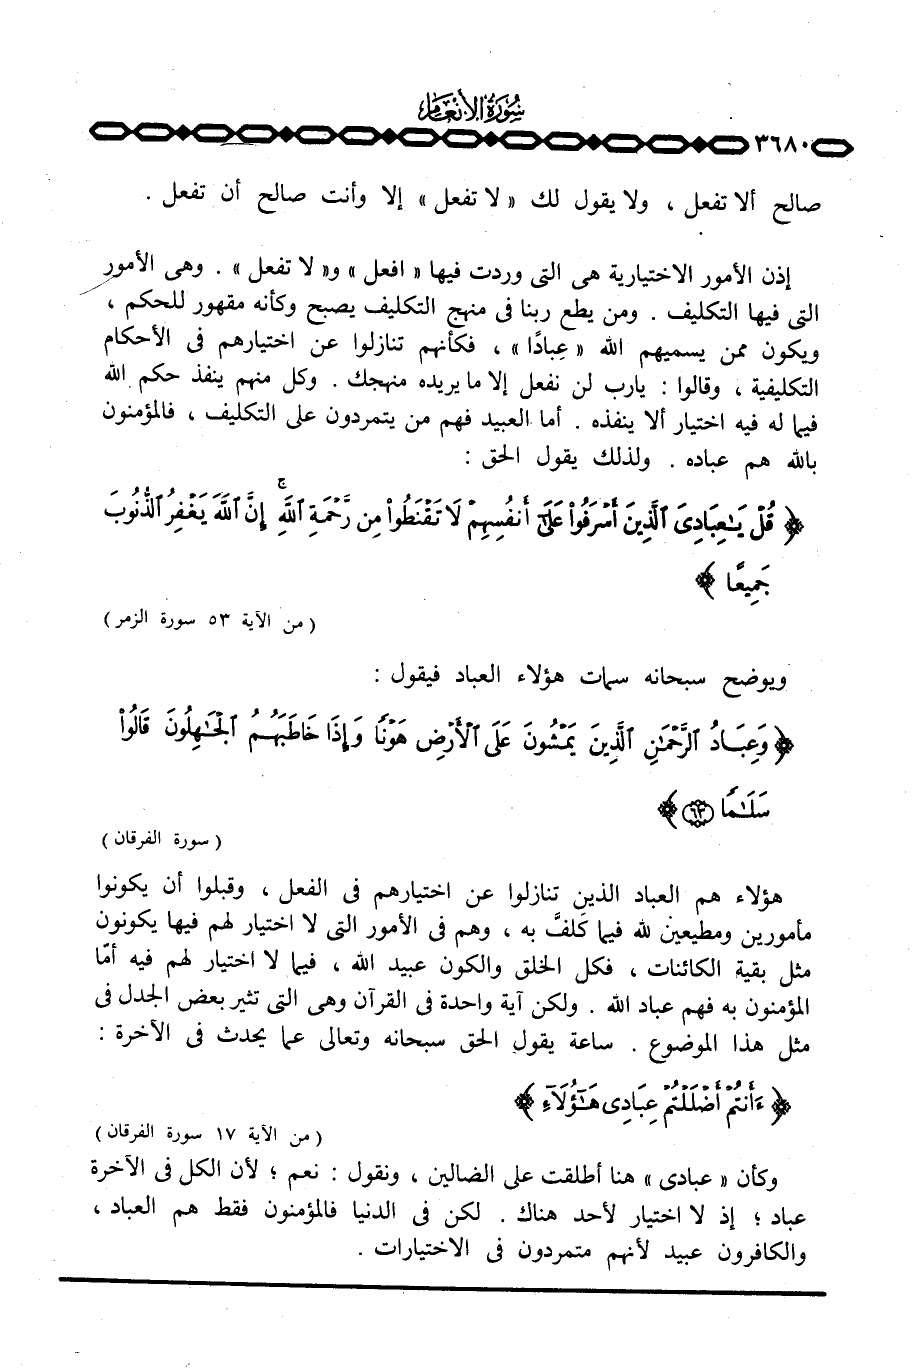 سورة الأنعام
٣٦٨٠
صالح ألا تفعل ، ولا يقول لك « لا تفعل » إلا وأنت صالح أن تفعل .
إذن الأمور الاختيارية هى التى وردت فيها « افعل » و« لا تفعل » . وهى الأمور
التى فيها التكليف . ومن يطع ربنا فى منهج التكليف يصبح وكأنه مقهور للحكم ،
ويكون ممن يسميهم الله « عِبادًا » ، فكأنهم تنازلوا عن اختيارهم فى الأحكام
التكليفية ، وقالوا : يارب لن نفعل إلا ما يريده منهجك . وكل منهم ينفذ حكم الله
فيما له فيه اختيار ألا ينفذه . أما العبيد فهم من يتمردون على التكليف ، فالمؤمنون
بالله هم عباده . ولذلك يقول الحق :
﴿ قُلْ يَـٰعِبَادِىَ ٱلَّذِينَ أَسْرَفُوا۟ عَلَىٰٓ أَنفُسِهِمْ لَا تَقْنَطُوا۟ مِن رَّحْمَةِ ٱللَّهِ ۚ إِنَّ ٱللَّهَ يَغْفِرُ ٱلذُّنُوبَ
جَمِيعًا ﴾
( من الآية ٥٣ سورة الزمر )
ويوضح سبحانه سمات هؤلاء العباد فيقول :
﴿ وَعِبَادُ ٱلرَّحْمَـٰنِ ٱلَّذِينَ يَمْشُونَ عَلَى ٱلْأَرْضِ هَوْنًا وَإِذَا خَاطَبَهُمُ ٱلْجَـٰهِلُونَ قَالُوا۟
سَلَـٰمًا ﴿٦٣﴾ ﴾
( سورة الفرقان )
هؤلاء هم العباد الذين تنازلوا عن اختيارهم فى الفعل ، وقبلوا أن يكونوا
مأمورين ومطيعين لله فيما كَلفَّ به ، وهم فى الأمور التى لا اختيار لهم فيها يكونون
مثل بقية الكائنات ، فكل الخلق والكون عبيد الله ، فيما لا اختيار لهم فيه أمّا
المؤمنون به فهم عباد الله . ولكن آية واحدة فى القرآن وهى التى تثير بعض الجدل فى
مثل هذا الموضوع . ساعة يقول الحق سبحانه وتعالى عما يحدث فى الآخرة :
﴿ ءَأَنتُمْ أَضْلَلْتُمْ عِبَادِى هَـٰٓؤُلَآءِ ﴾
( من الآية ١٧ سورة الفرقان )
وكأن « عبادى » هنا أطلقت على الضالين ، ونقول : نعم ؛ لأن الكل فى الآخرة
عباد ؛ إذ لا اختيار لأحد هناك . لكن فى الدنيا فالمؤمنون فقط هم العباد ،
والكافرون عبيد لأنهم متمردون فى الاختيارات .